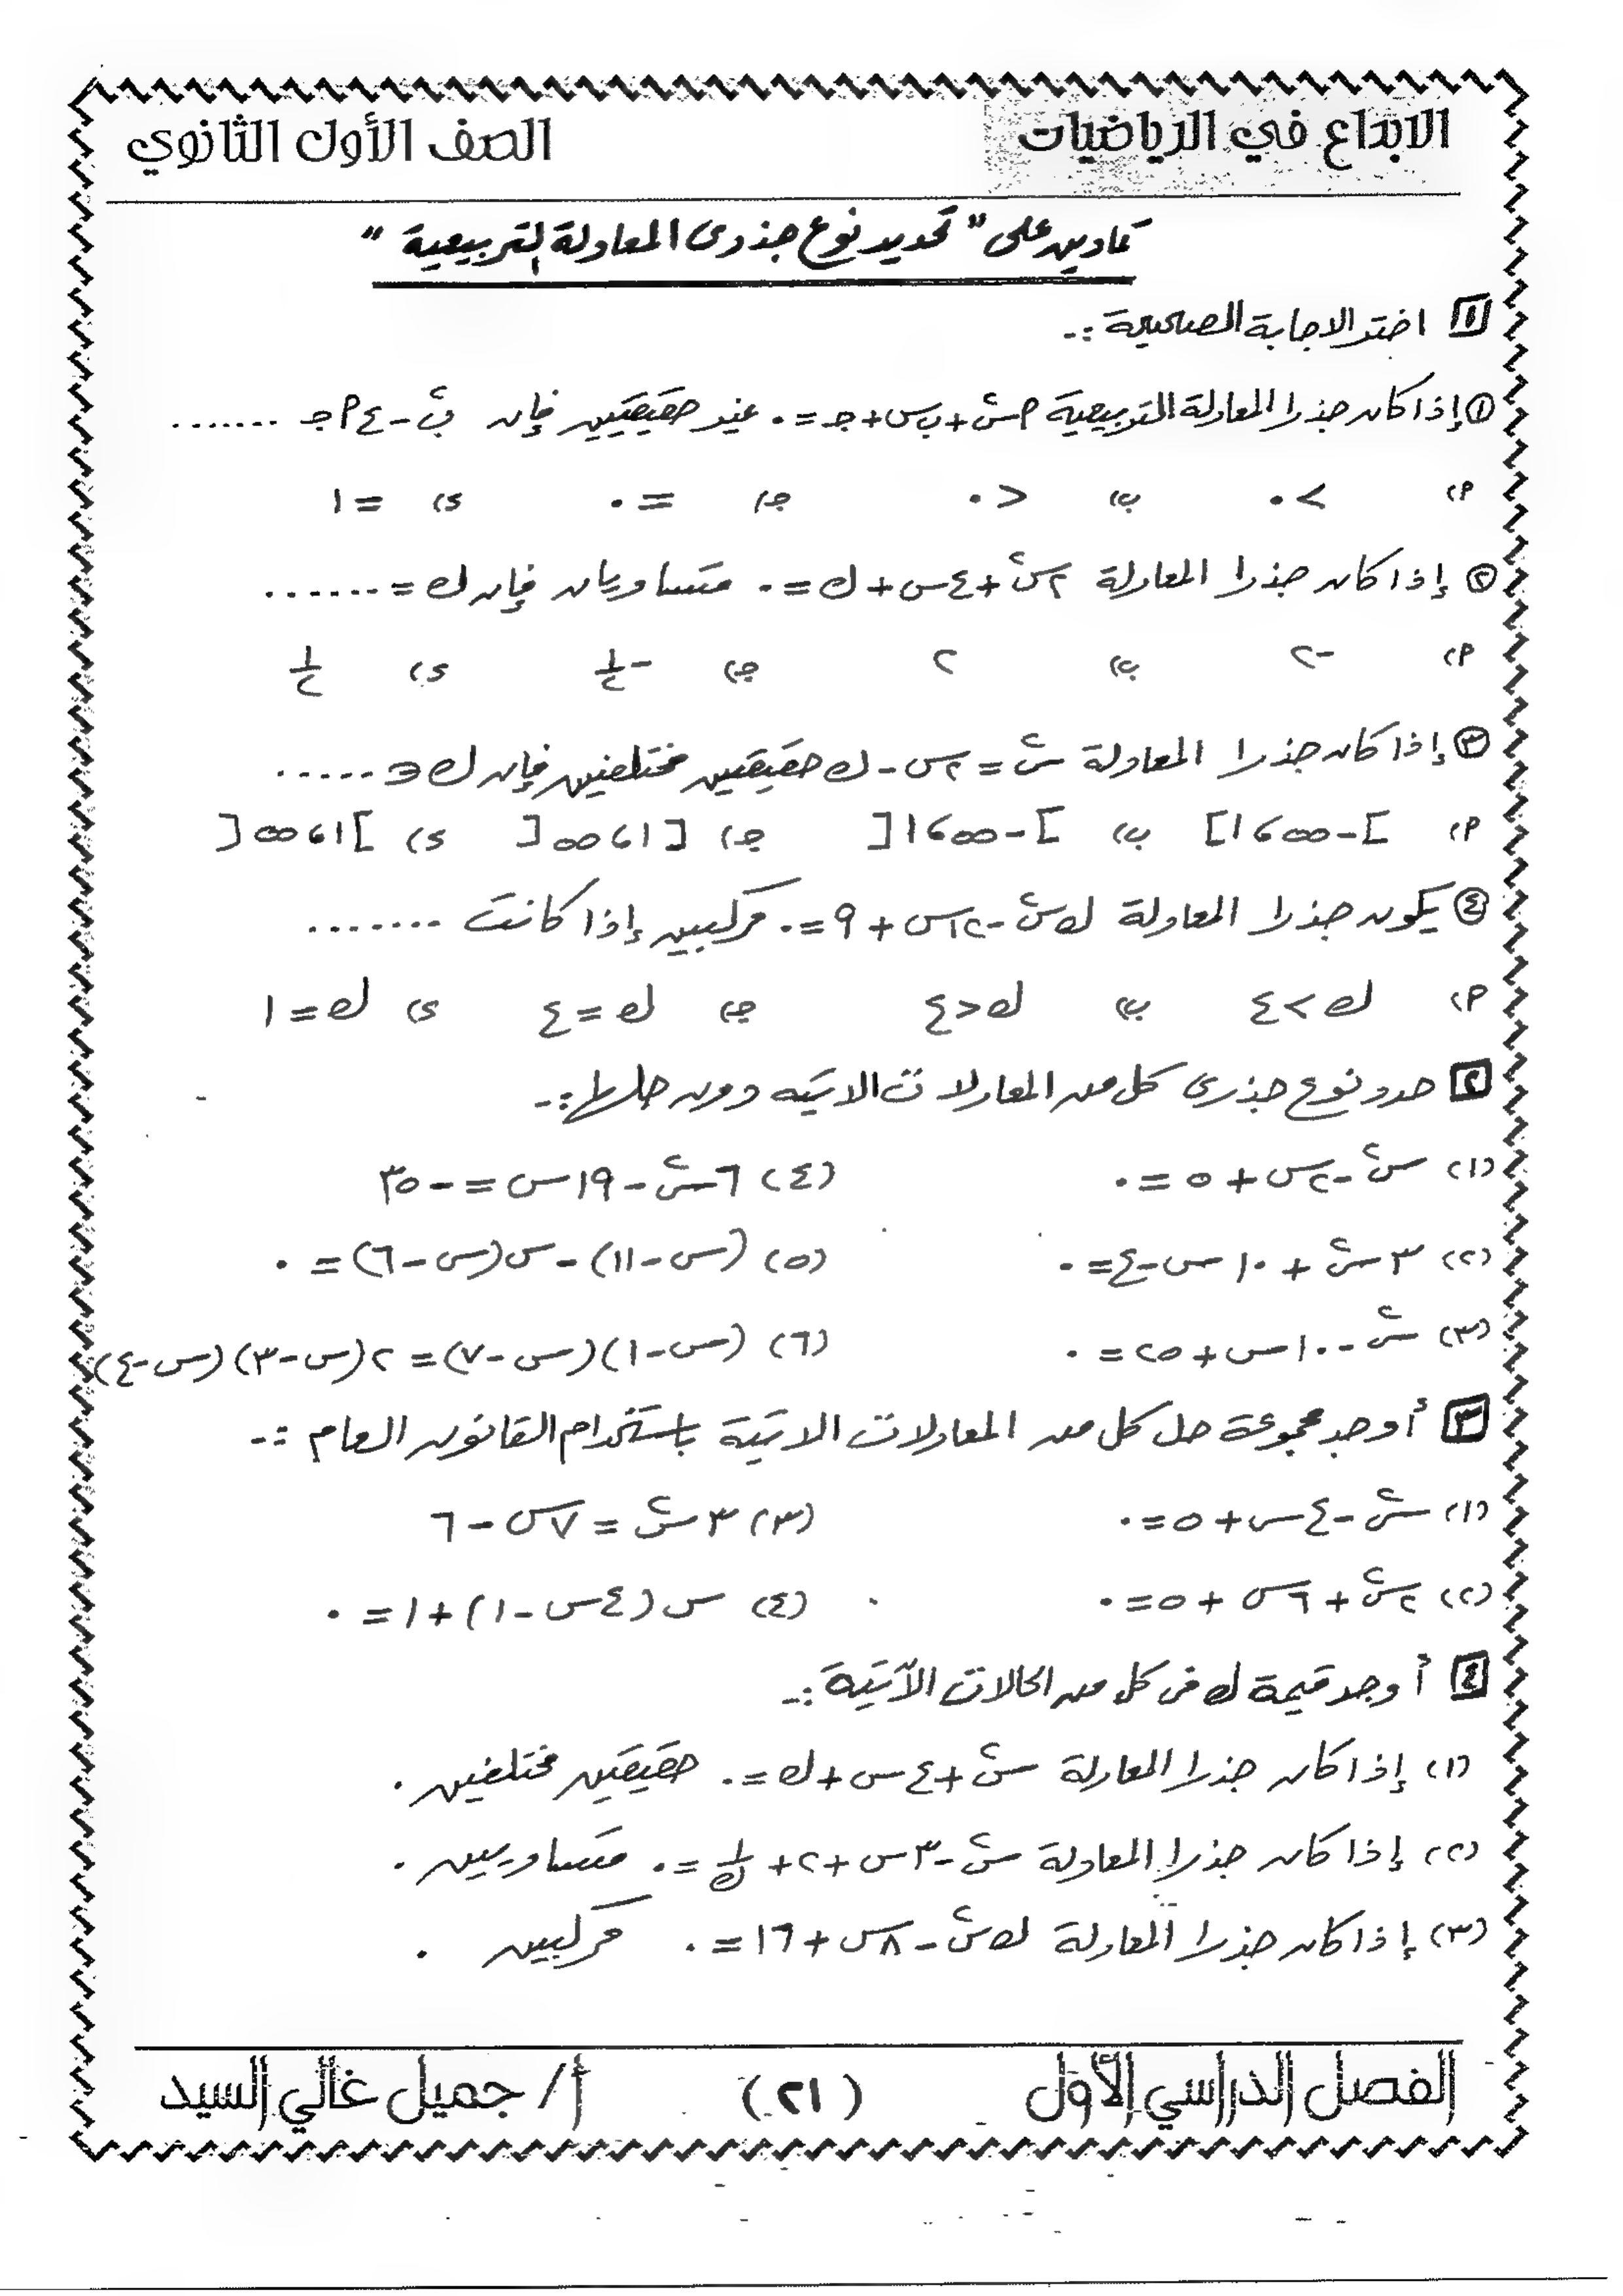 الابداع في الرياضيات الصف الأول الثانوي
تمارين على "تحديد نوع جذرى المعادلة التربيعية"
١ اختر الاجابة الصحيحة :-
① إذا كان جذرا المعادلة التربيعية ٢س² + ب س + جـ = ٠ غير حقيقيين فإن ب² - ٤ ٢ جـ .......
٢) > ٠ ب) < ٠ جـ) = ٠ د) = ١
② إذا كان جذرا المعادلة ٢س² + ٤س + ك = ٠ متساويان فإن ك = ......
٢) -٢ ب) ٢ جـ) -١/٢ د) ١/٢
③ إذا كان جذرا المعادلة س² = ٢س - ك حقيقيين مختلفين فإن ك ∋ .....
٢) ]-∞ ، ١] ب) ]-∞ ، ١[ جـ) [١ ، ∞[ د) ]١ ، ∞[
④ يكون جذرا المعادلة ك س² - ١٢س + ٩ = ٠ مركبين إذا كانت .......
٢) ك > ٤ ب) ك < ٤ جـ) ك = ٤ د) ك = ١
٢ حدد نوع جذرى كل من المعادلات الاتيه دون حلها :-
(١) س² - ٢س + ٥ = ٠ (٤) ٦س² - ١٩س = -٣٥
(٢) ٣س² + ١٠س - ٤ = ٠ (٥) (س - ١١) - س(س - ٦) = ٠
(٣) س² - ١٠س + ٢٥ = ٠ (٦) (س - ١)(س - ٧) = ٢(س - ٣)(س - ٤)
٣ أوجد مجموعة حل كل من المعادلات الاتية باستخدام القانون العام :-
(١) س² - ٤س + ٥ = ٠ (٣) ٣س² = ٧س - ٦
(٢) ٢س² + ٦س + ٥ = ٠ (٤) س(٤س - ١) + ١ = ٠
٤ أوجد قيمة ك فى كل من الحالات الآتية :-
(١) إذا كان جذرا المعادلة س² + ٤س + ك = ٠ حقيقيين مختلفين .
(٢) إذا كان جذرا المعادلة س² - ٣س + ٢ + ١/ك = ٠ متساويين .
(٣) إذا كان جذرا المعادلة ك س² - ٨س + ١٦ = ٠ مركبين .
الفصل الدراسي الأول (٢١) أ/ جميل غالي السيد